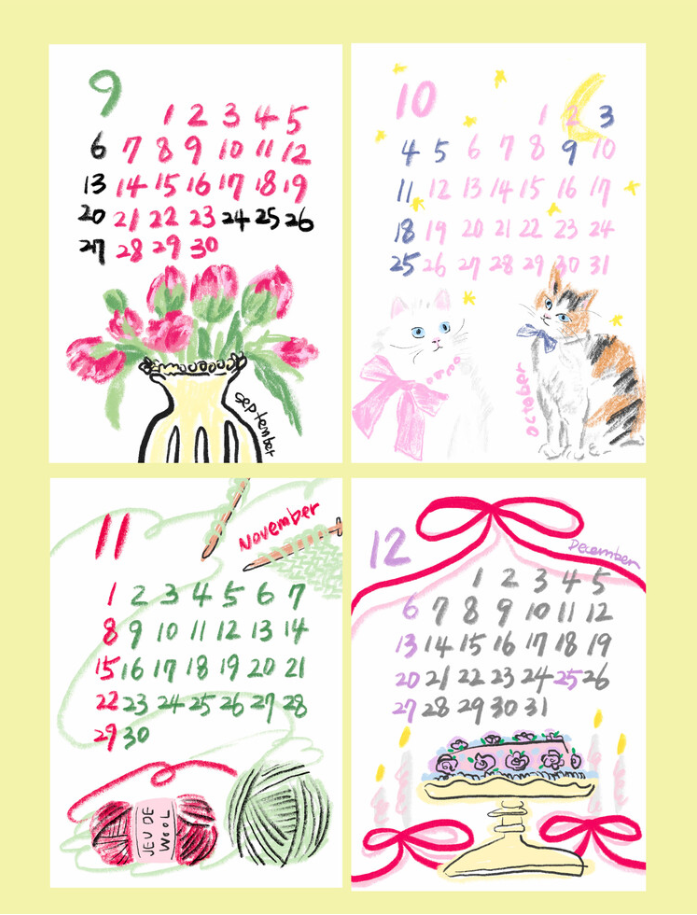 9
1 2 3 4 5
6 7 8 9 10 11 12
13 14 15 16 17 18 19
20 21 22 23 24 25 26
27 28 29 30
september
10
1 2 3
4 5 6 7 8 9 10
11 12 13 14 15 16 17
18 19 20 21 22 23 24
25 26 27 28 29 30 31
october
11
November
1 2 3 4 5 6 7
8 9 10 11 12 13 14
15 16 17 18 19 20 21
22 23 24 25 26 27 28
29 30
JEU DE
WOOL
12
December
1 2 3 4 5
6 7 8 9 10 11 12
13 14 15 16 17 18 19
20 21 22 23 24 25 26
27 28 29 30 31